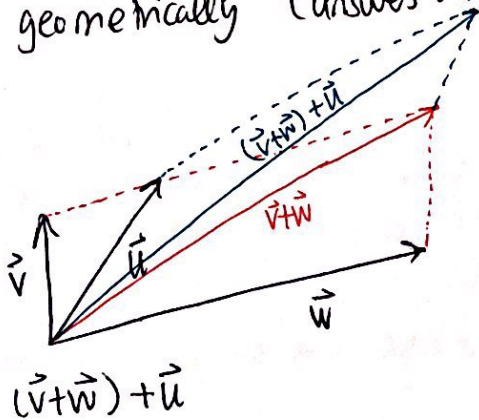 geometrically (answers
(v⃗+w⃗)+u⃗
v⃗+w⃗
u⃗
v⃗
w⃗
(v⃗+w⃗)+u⃗